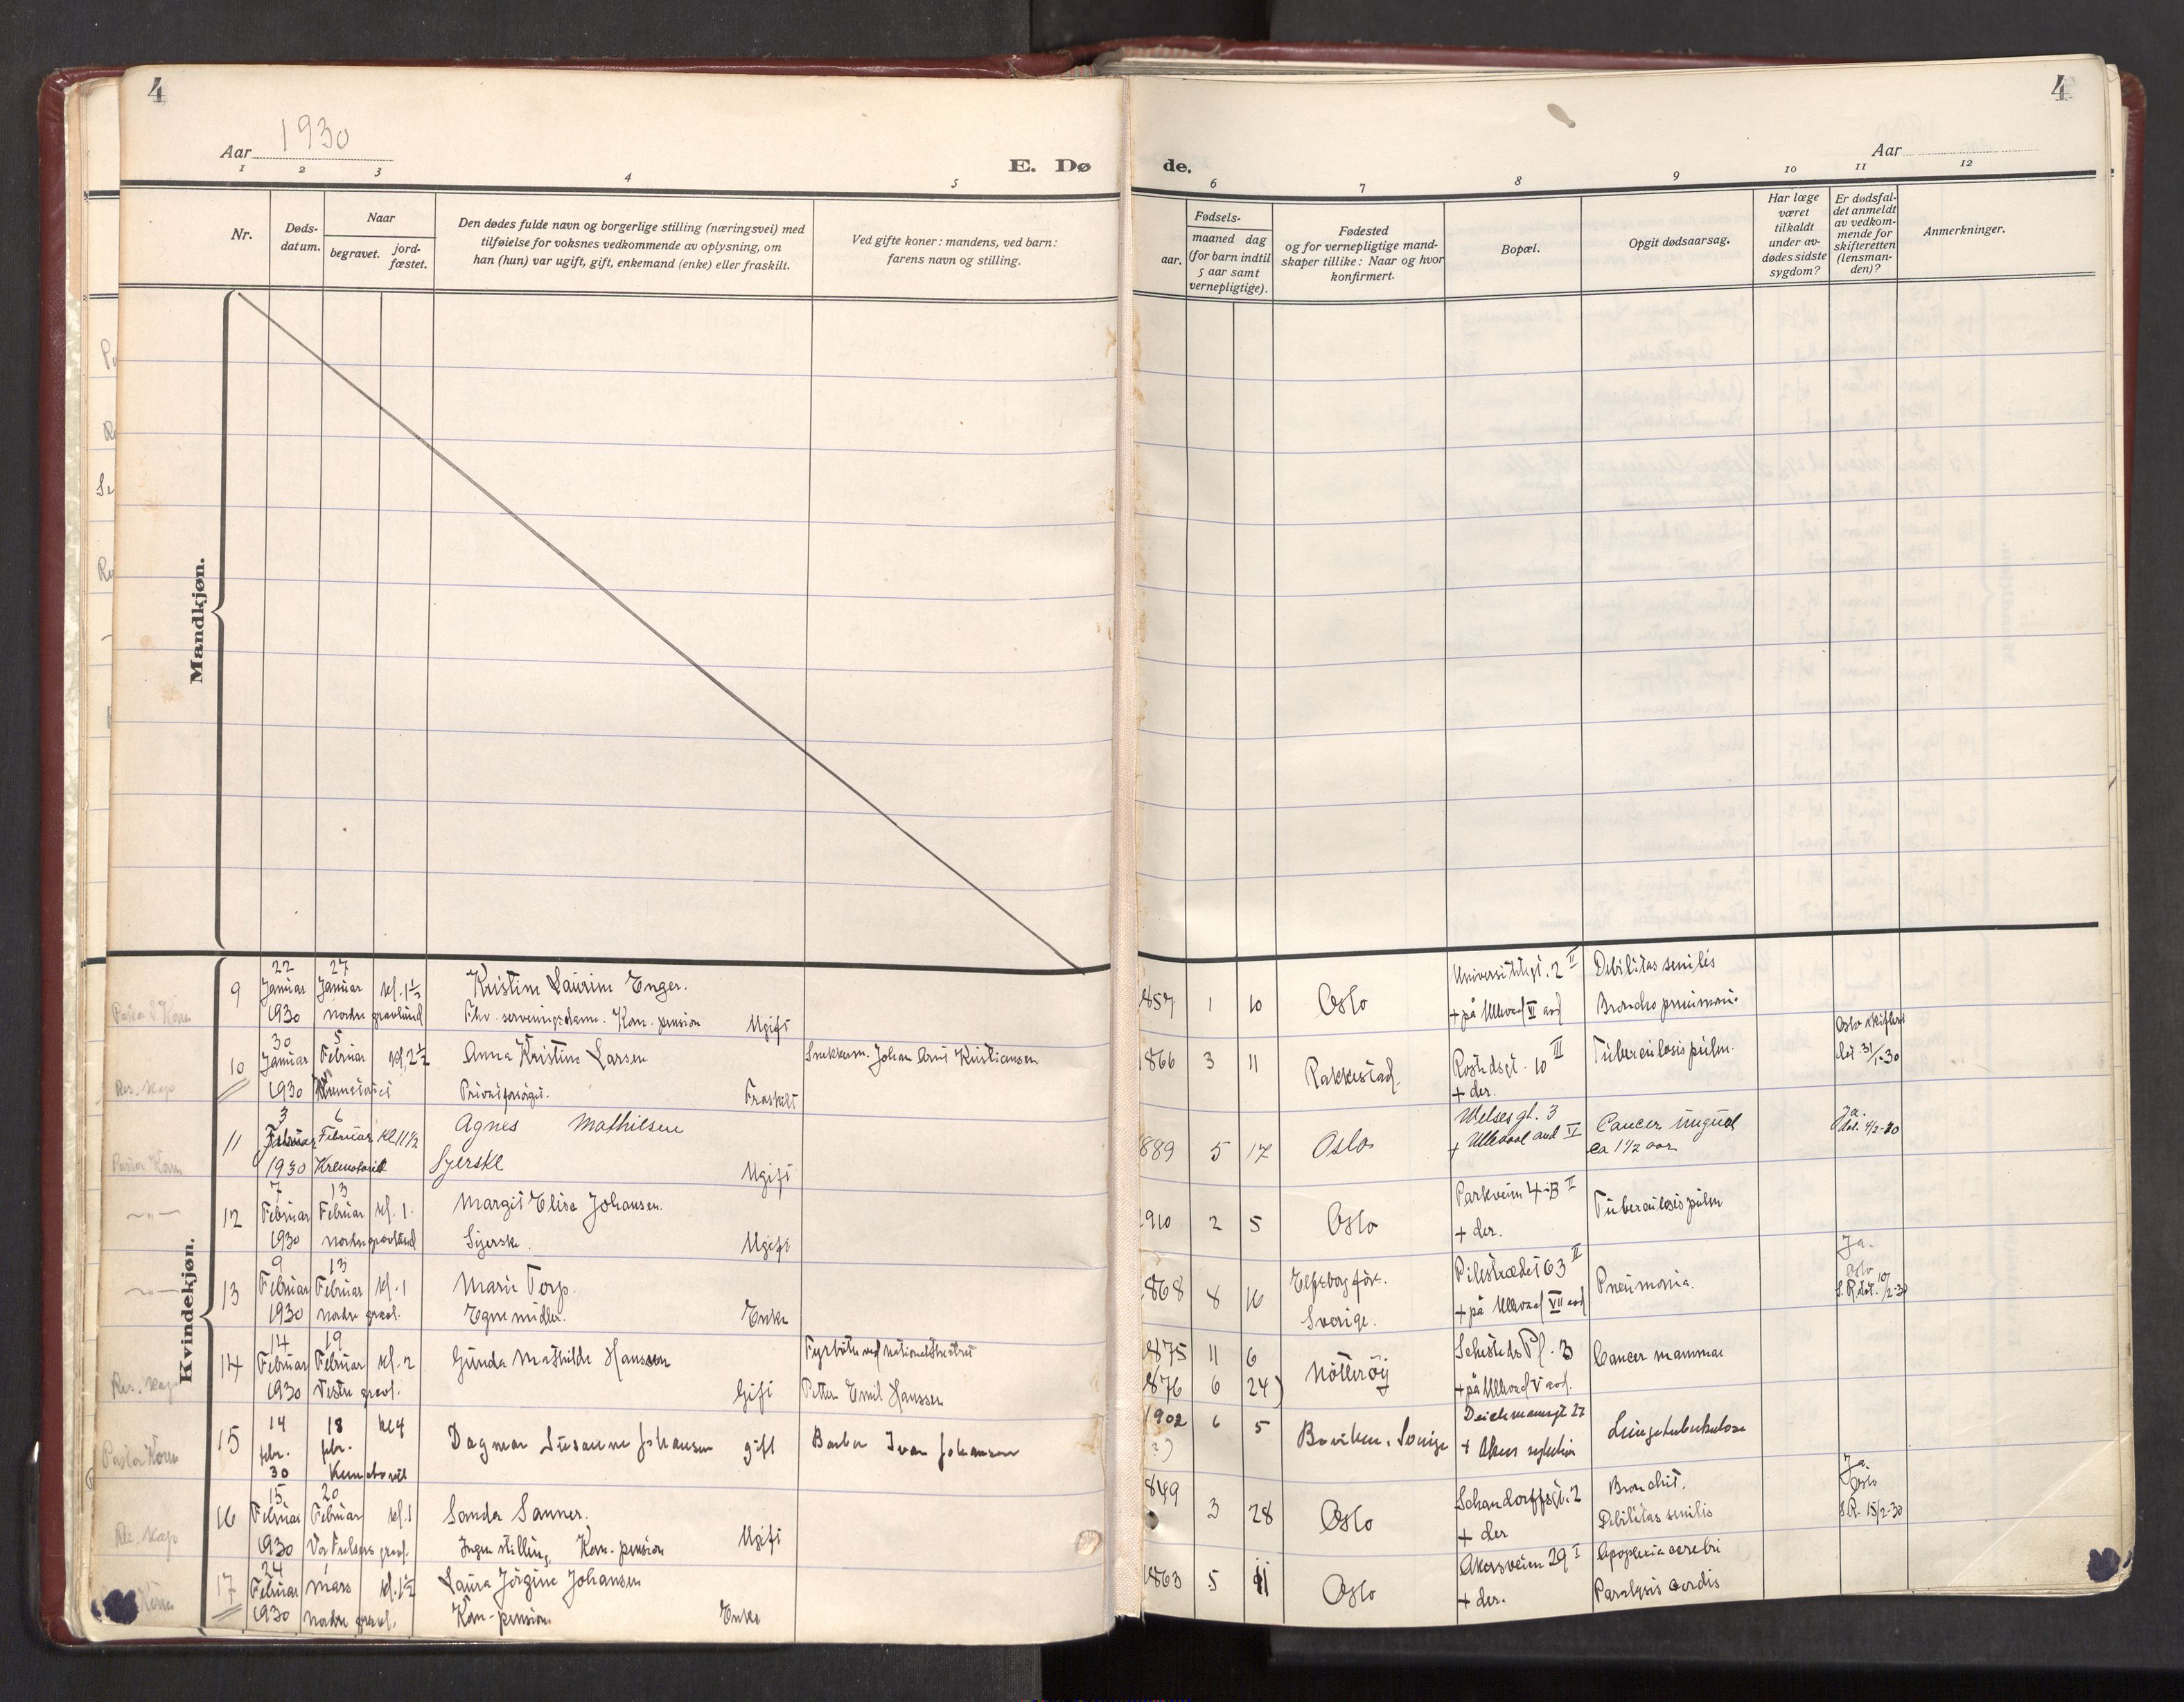 4
Aar 1930
E. Dø
1 2 3 4 5
Nr.
Døds-
datum.
Naar
begravet.
jord-
fæstet.
Den dødes fulde navn og borgerlige stilling (næringsvei) med
tilføielse for voksnes vedkommende av oplysning, om
han (hun) var ugift, gift, enkemand (enke) eller fraskilt.
Ved gifte koner: mandens, ved barn:
farens navn og stilling.
Mandkjøn.
Kvindekjøn.
9 22 Januar 1930 27 Januar kl. 1½ nordre gravlund
Kristine Laurine Enger.
Fhv. serveringsdame. Kom. pension Ugift
Res. Kap
10 30 Januar 1930 5 Februar kl. 2½ Krematoriet
Anna Kristine Larsen
Privat forsørget. Fraskilt
Snekkerm. Johan Arnt Kristiansen
Pastor Koren
11 3 Februar 1930 6 Februar Kl 11 1/2 Krematoriet
Agnes Mathilsen
Syerske Ugift
— " —
12 7 Februar 1930 13 Februar kl. 1. nordre gravlund
Margit Elisa Johansen.
Syerske. Ugift
— " —
13 9 Februar 1930 13 Februar kl. 1 nordre gravl.
Marie Torp.
Egne midler. Enke
Res. Kap
14 14 Februar 1930 19 Februar kl. 2 Vestre gravl.
Gunda Mathilde Hanssen
Gift
Fyrbøter ved Nationaltheatret
Petter Emil Hanssen
Pastor Koren
15 14 febr. 30 18 febr. kl 4 Krematoriet
Dagmar Susanne Johansen gift
Barber Ivar Johansen
16 15 Februar 1930 20 Februar kl. 1 Vor Frelsers gravl.
Sanda Sanner.
Ingen stilling, Kom. pension Ugift
Koren
17 24 Februar 1930 1 Mars kl. 1½ nordre gravl.
Laura Jörgine Johansen
Kom - pension Enke
4
de.
Aar
6 7 8 9 10 11 12
aar.
Fødsels-
maaned dag
(for barn indtil
5 aar samt
vernepligtige).
Fødested
og for vernepligtige mand-
skaper tillike: Naar og hvor
konfirmert.
Bopæl.
Opgit dødsaarsag.
Har læge
været
tilkaldt
under av-
dødes sidste
sygdom?
Er dødsfal-
det anmeldt
av vedkom-
mende for
skifteretten
(lensman-
den)?
Anmerkninger.
1857 1 10 Oslo
Universitetsgt. 2 II
+ på Ullevaal II avd
Debilitas senilis
Bronchopneumoni
1866 3 11 Rakkestad.
+ der.
Tuberculosis pulm.
Oslo skifteret
dat. 31/1-30
1889 5 17 Oslo
Welsesgt. 3
+ Ullevaal avd IV
ca 1 1/2 aar
Ja.
dat. 4/2-30
1910 2 5 Oslo
Parkveien 4B II
+ der.
Tuberculosis pulm
1868 8 16 Elfsborg för.
Sverige.
Pilestrædet 63 II
+ på Ullevaal VII avd
Pneumonia.
Ja.
Oslo
S. R. dat. 10/2-30
1875 11 6
1876 6 24)
Nötteröy
Schesteds Pl. 3
+ på Ullevaal V avd.
Cancer mammae
1902 6 5
?)
Deichmannsgt 27
Lungetuberkulose
1849 3 28 Oslo
Schandorffsgt. 2
+ der
Bronchit.
Debilitas senilis
Ja.
Oslo
S.R. 15/2-30
1863 5 11 Oslo
Akersveien 29 I
+ der.
Apoplexia cerebri
Paralysis cordis